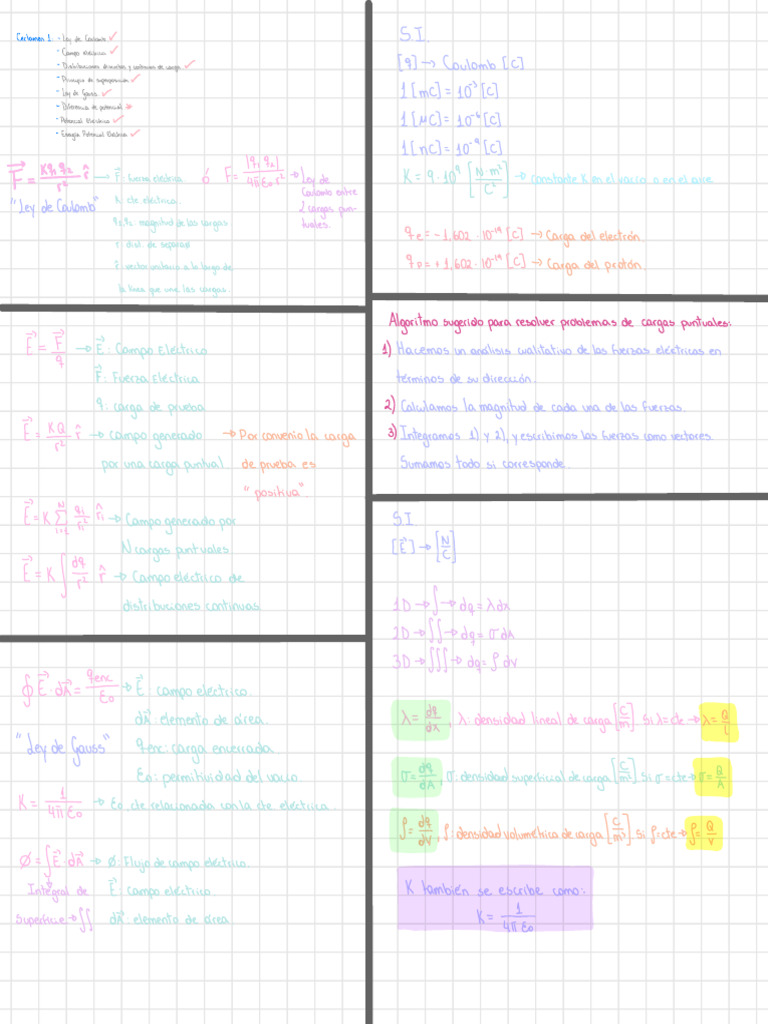 Certamen 1: - Ley de Coulomb ✓
- Campo eléctrico ✓
- Distribuciones discretas y continuas de carga ✓
- Principio de superposición ✓
- Ley de Gauss ✓
- Diferencia de potencial
- Potencial Eléctrico ✓
- Energía Potencial Eléctrica ✓
F⃗ = Kq₁q₂/r² r̂ → F⃗: fuerza eléctrica. ó F = |q₁q₂|/4πε₀r² → Ley de Coulomb entre 2 cargas puntuales.
"Ley de Coulomb"
K: cte. eléctrica.
q₁,q₂: magnitud de las cargas
r: dist. de separac
r̂: vector unitario a lo largo de
la línea que une las cargas.
S.I.
[q] → Coulomb [C]
1[mC] = 10⁻³[C]
1[μC] = 10⁻⁶[C]
1[nC] = 10⁻⁹[C]
K = 9·10⁹ [N·m²/C²] → constante K en el vacío o en el aire
qe = -1,602·10⁻¹⁹[C] → Carga del electrón
qp = +1,602·10⁻¹⁹[C] → Carga del protón.
E⃗ = F⃗/q → E⃗: Campo Eléctrico
F⃗: Fuerza Eléctrica
q: carga de prueba
E⃗ = KQ/r² r̂ → campo generado → Por convenio la carga
por una carga puntual de prueba es
"positiva".
E⃗ = K Σ(i=1, N) qi/ri² r̂i → Campo generado por
N cargas puntuales
E⃗ = K ∫ dq/r² r̂ → Campo eléctrico de
distribuciones continuas
Algoritmo sugerido para resolver problemas de cargas puntuales:
1) Hacemos un análisis cualitativo de las fuerzas eléctricas en
términos de su dirección.
2) Calculamos la magnitud de cada una de las fuerzas.
3) Integramos 1) y 2), y escribimos las fuerzas como vectores.
Sumamos todo si corresponde.
S.I
[E⃗] → [N/C]
1D → ∫ → dq = λdx
2D → ∫∫ → dq = σdA
3D → ∫∫∫ → dq = ρdV
λ = dq/dx, λ: densidad lineal de carga [C/m]. Si λ=cte → λ = Q/L
σ = dq/dA, σ: densidad superficial de carga [C/m²]. Si σ=cte → σ = Q/A
ρ = dq/dV, ρ: densidad volumétrica de carga [C/m³]. Si ρ=cte → ρ = Q/V
K también se escribe como:
K = 1/4πε₀
∮E⃗·dA⃗ = qenc/ε₀ → E⃗: campo eléctrico.
dA⃗: elemento de área.
"Ley de Gauss" qenc: carga encerrada
ε₀: permitividad del vacío
K = 1/4πε₀ → ε₀, cte relacionada con la cte eléctrica.
Ø = ∫E⃗·dA⃗ → Ø: Flujo de campo eléctrico.
Integral de E⃗: campo eléctrico.
superficie → ∫∫ dA⃗: elemento de área